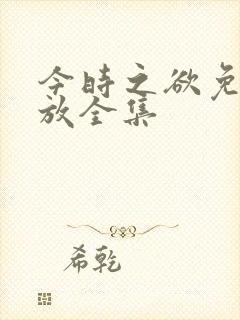 今时之欲免
放全集
希乾